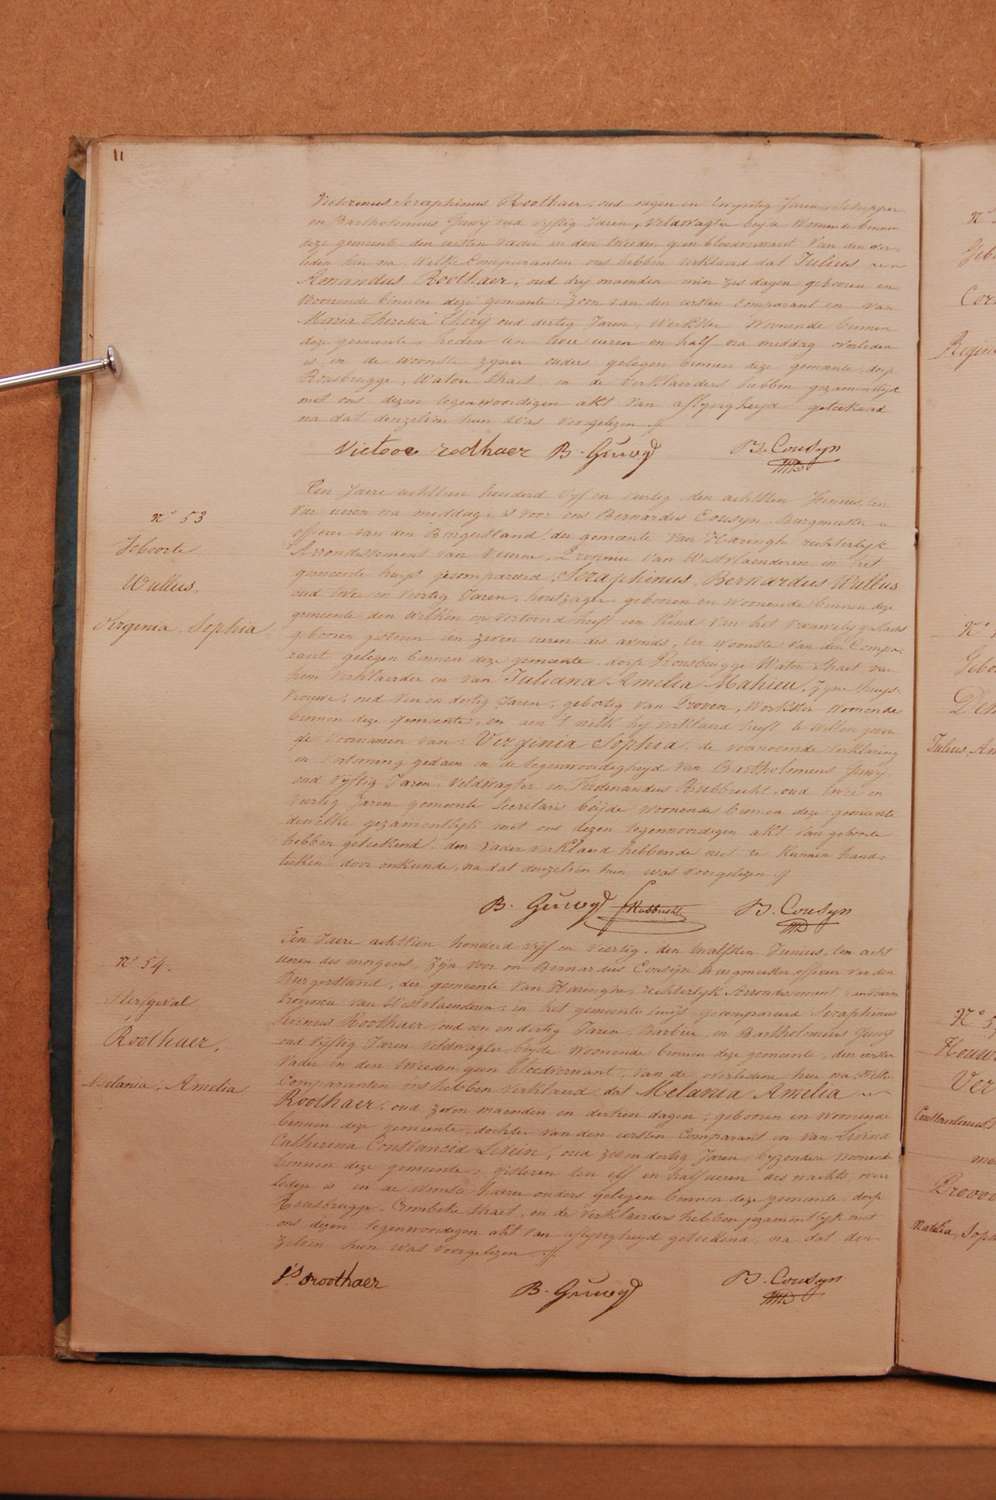 11
Victorinus Seraphinus Roothaer, oud negen en twyntig Jaren
en Bartholomeus Guwy oud vyftig Jaren, Veldwagter beyde Woonende binnen
deze gemeente den eersten Vader en den tweeden geen bloedverwant Van den over-
leden hier na, Welke Comparanten ons hebben verklaerd dat Julius
Romandus Roothaer, oud dry maenden min zes dagen geboren en
Woonende binnen deze gemeente Zoon van den eersten Comparant en van
Maria Theresia Thery oud dertig Jaren, Werkster Woonende binnen
deze gemeente, heden ten twee uren en half na middag overleden
is in de woonste zyner ouders gelegen binnen deze gemeente dorp
Rousbrugge, Watou Straet, en de Verklaerders hebben gezamentlyk
met ons dezen tegenwoordigen akt Van aflyvigheyd geteekend
na dat denzelven hun Was Voorgelezen
Victoor roothaer B. Guwy B. Cousyn
N° 53
Geboorte
Wullus,
Virginia, Sophia
Ten Jaere achttien honderd Vyf en Veertig den achtsten Junius, ten
Vier uren na middag, Voor ons Bernardus Cousyn Burgmeester
officier van den Burgerstand, der gemeente Van Haringhe rechterlyk
Arrondissement van Veurne, Provincie Van Westvlaenderen in het
gemeente huys gecompareerd, Seraphinus, Bernardus Wullus
oud twee en Veertig Jaren, houtzager geboren en Woonende binnen deze
gemeente den welken en Vertoond heeft een Kind Van het Vrouwelyk geslacht
geboren gisteren ten zeven uren des avonds, ter woonste Van den Compa-
rant gelegen binnen deze gemeente, dorp Rousbrugge Watou Straet, van
hem Verklaerder en van Juliana Amelia Mahieu, Zyne huys-
Vrouwe, oud Vier en dertig Jaren, geboortig Van Proven, Werkster Woonende
binnen deze Gemeente, en aen 't welk hy verklaerd heeft te willen geven
de Voornamen van: Virginia Sophia, de voornoemde Verklaring
en Vertooning gedaen in de tegenwoordigheyd Van Bartholomeus Guwy
oud Vyftig Jaren, Veldwagter en Ferdinandus Rubbrecht, oud twee en
Veertig Jaren gemeente Secretaris beyde Woonende binnen deze gemeente
dewelke gezamentlyk met ons dezen tegenwoordigen akt Van geboorte
hebben geteekend, den Vader verklaerd hebbende niet te Kunnen hand-
teeken door onkunde, na dat denzelven hun was Voorgelezen
B. Guwy F Rubbrecht B. Cousyn
N° 54.
Sterfgeval
Roothaer,
Melania, Amelia
Ten Jaere achttien honderd Vyf en Veertig, den twalfsten Junius, ten acht
uren des morgens, Zyn Voor ons Bernardus Cousyn burgmeester officier van den
Burgerstand, der gemeente Van Haringhe, rechterlyk Arrondissement van Veurne
Provincie van Westvlaenderen, in het gemeente huys gecompareerd Seraphinus
Roothaer, oud een en dertig Jaren, barbier, en Bartholomeus Guwy
oud Vyftig Jaren Veldwagter, beyde Woonende binnen deze gemeente, den eersten
Vader en den tweeden geen bloedverwant, van de overledene hier na Welke
Comparanten ons hebben Verklaerd dat Melania Amelia
Roothaer, oud zeven maenden en dertien dagen, geboren en Woonende
binnen deze gemeente, dochter van den eersten Comparant en van
Catherina Constancia Leun, oud zes en dertig Jaren, byzondere Woonende
binnen deze gemeente, gisteren ten elf en half uren des nachts, over-
leden is in de Woonste harer ouders gelegen binnen deze gemeente, dorp
Rousbrugge, Crombeke Straet, en de Verklaerders hebben gezamentlyk met
ons dezen tegenwoordigen akt van aflyvigheyd geteekend, na dat den-
zelven hun was Voorgelezen
roothaer B. Guwy B. Cousyn